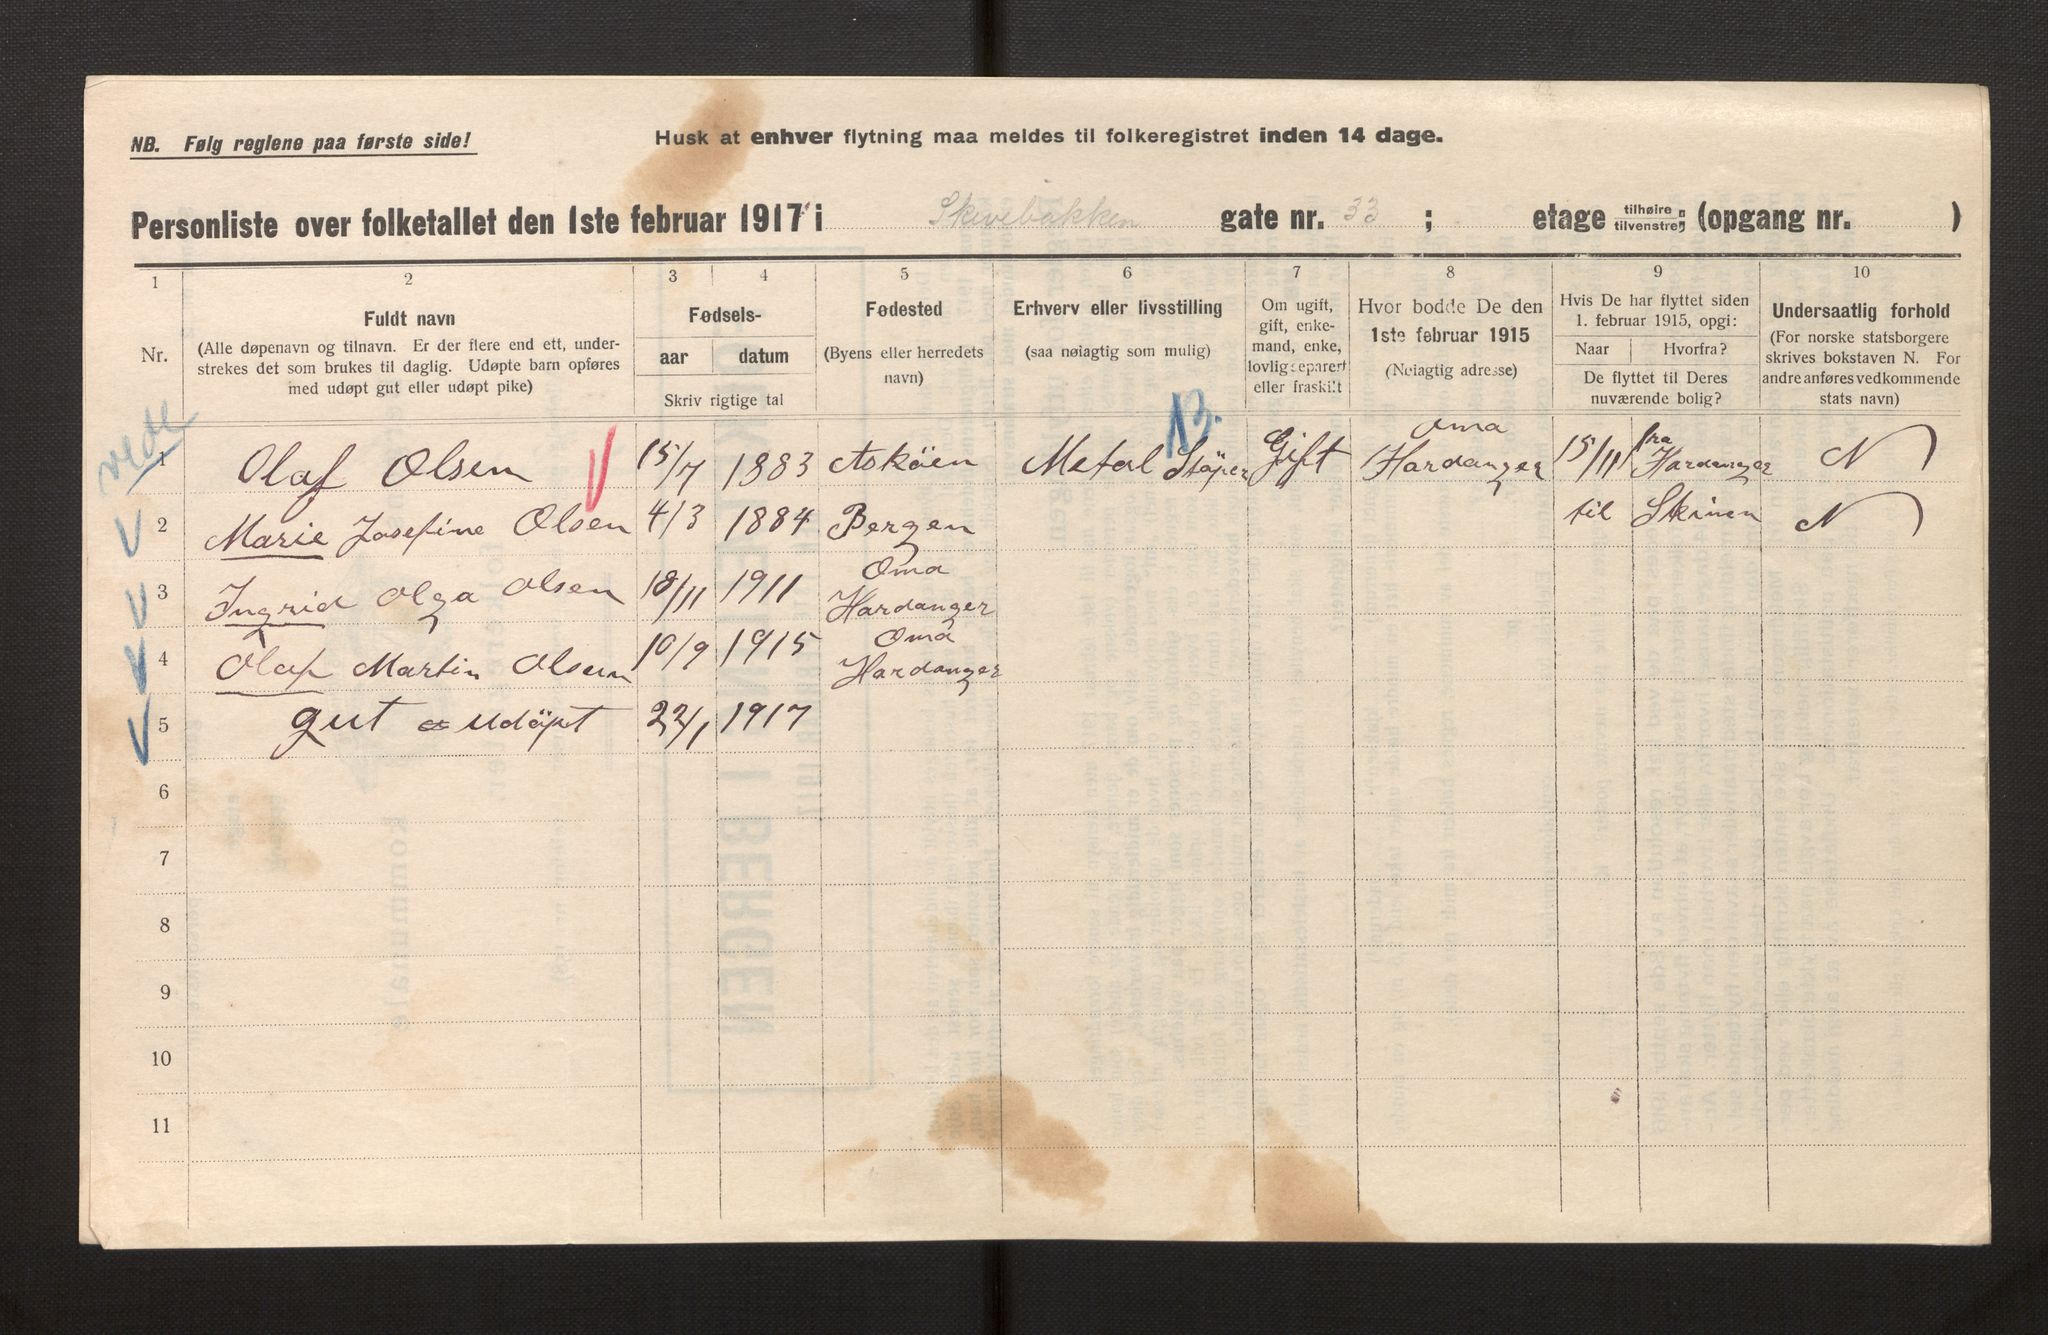 NB. Følg reglene paa første side!
Husk at enhver flytning maa meldes til folkeregistret inden 14 dage.
Personliste over folketallet den 1ste februar 1917 i Skivebakken gate nr. 33 ; etage tilhøire tilvenstre; (opgang nr. )
1 2 3 4 5 6 7 8 9 10
Nr.
Fuldt navn
(Alle døpenavn og tilnavn. Er der flere end ett, under-
strekes det som brukes til daglig. Udøpte barn opføres
med udøpt gut eller udøpt pike)
Fødsels-
aar datum
Skriv rigtige tal
Fødested
(Byens eller herredets
navn)
Erhverv eller livsstilling
(saa nøiagtig som mulig)
Om ugift,
gift, enke-
mand, enke,
lovlig separert
eller fraskilt
Hvor bodde De den
1ste februar 1915
(Nøiagtig adresse)
Hvis De har flyttet siden
1. februar 1915, opgi:
Naar Hvorfra?
De flyttet til Deres
nuværende bolig?
Undersaatlig forhold
(For norske statsborgere
skrives bokstaven N. For
andre anføres vedkommende
stats navn)
vede
13.
1 Olaf Olsen 15/7 1883 Asköen Metal Stöper Gift Oma Hardanger 15/11 fra Hardanger N
2 Marie Josefine Olsen 4/3 1884 Bergen til Skiven N
3 Ingrid Olga Olsen 18/11 1911 Oma Hardanger
4 Olaf Martin Olsen 10/9 1915 Oma Hardanger
5 gut udöpt 22/1 1917
6
7
8
9
10
11